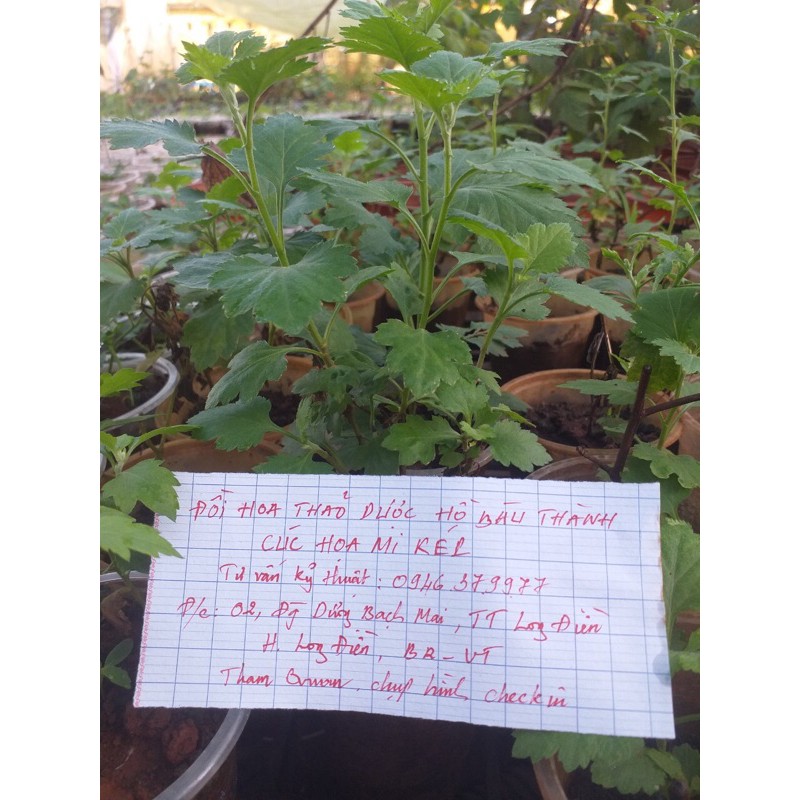 ĐỒI HOA THẢO DƯỢC HỒ BÀU THÀNH
CÚC HOẠ MI KÉP
Tư vấn kỹ thuật: 0946.379977
Đ/c: 02, Dương Bạch Mai, TT Long Điền
H. Long Điền, BR-VT
Tham Quan, chụp hình, check in